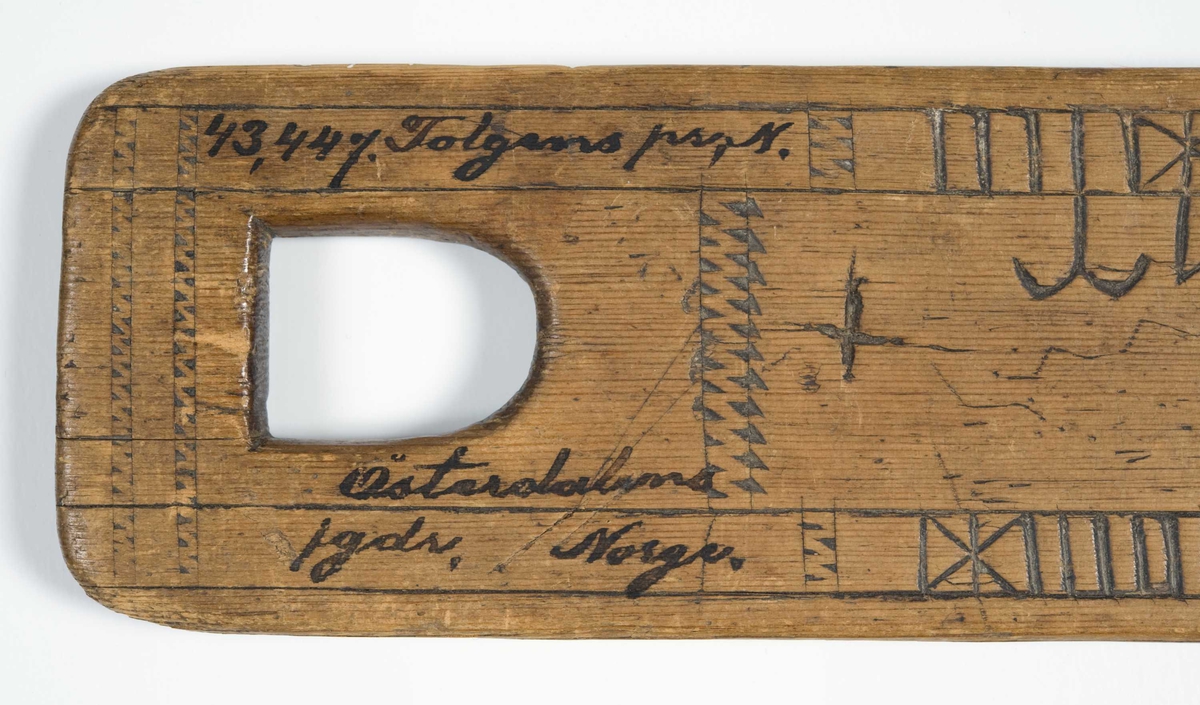 43,447. Tolgens prg, N.
Österdalens
fgdr, Norge.